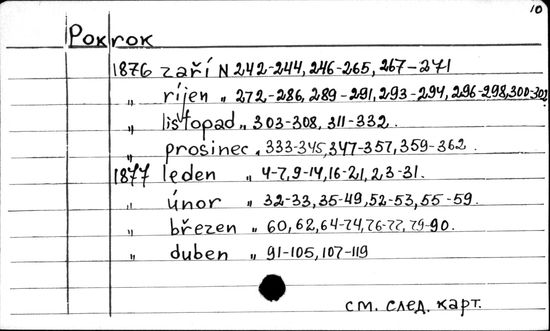 10
Pokrok
1876 září N 242-244, 246-265, 267-271
" říjen " 272-286, 289-291, 293-294, 296-298, 300-302
" listopad " 303-308, 311-332.
" prosinec " 333-345, 347-357, 359-362.
1877 leden " 4-7, 9-14, 16-21, 23-31.
" únor " 32-33, 35-49, 52-53, 55-59.
" březen " 60, 62, 64-74, 76-77, 79-90.
" duben " 91-105, 107-119
см. след. карт.